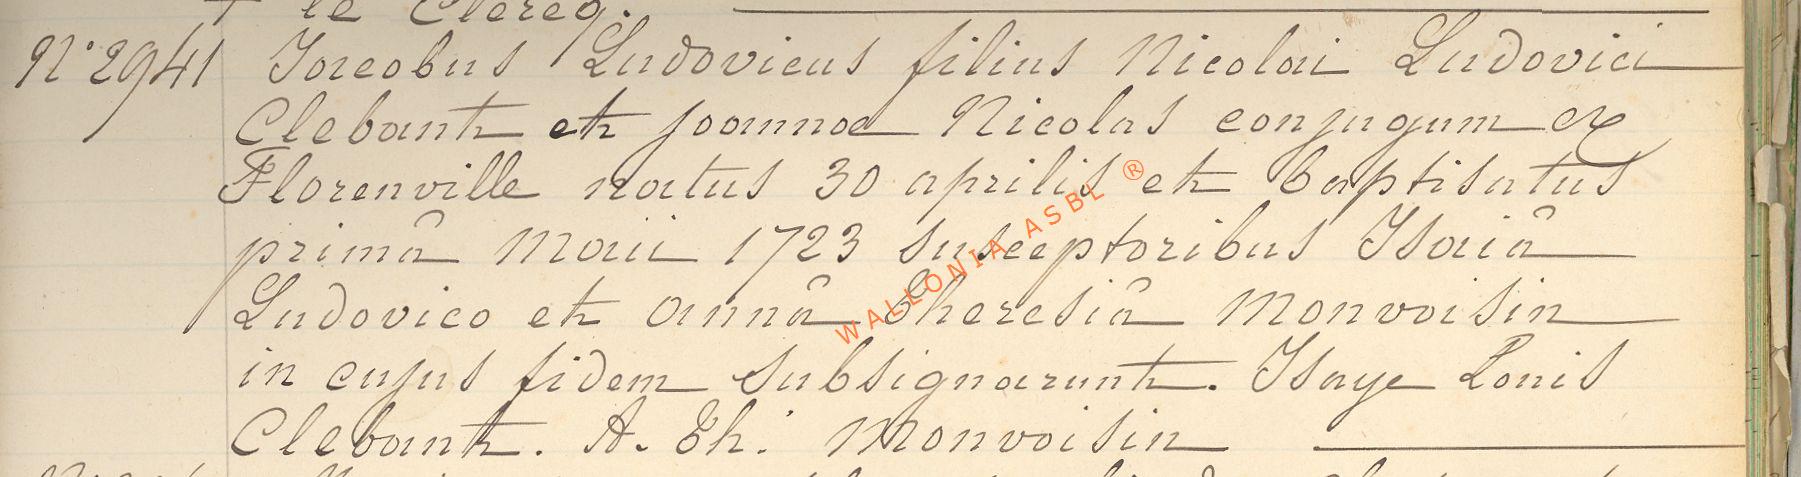 le Clercq.
N° 2941 Jacobus Ludovicus filius Nicolai Ludovici
Clebant et joannae Nicolas conjugum ex
Florenville natus 30 aprilis et baptisatus
primâ Maii 1723 susceptoribus Isaiâ
Ludovico et annâ Theresiâ Monvoisin
in cujus fidem subsignarunt. Isaye Louis
Clebant. A. Th. Monvoisin
WALLONIA ASBL ®